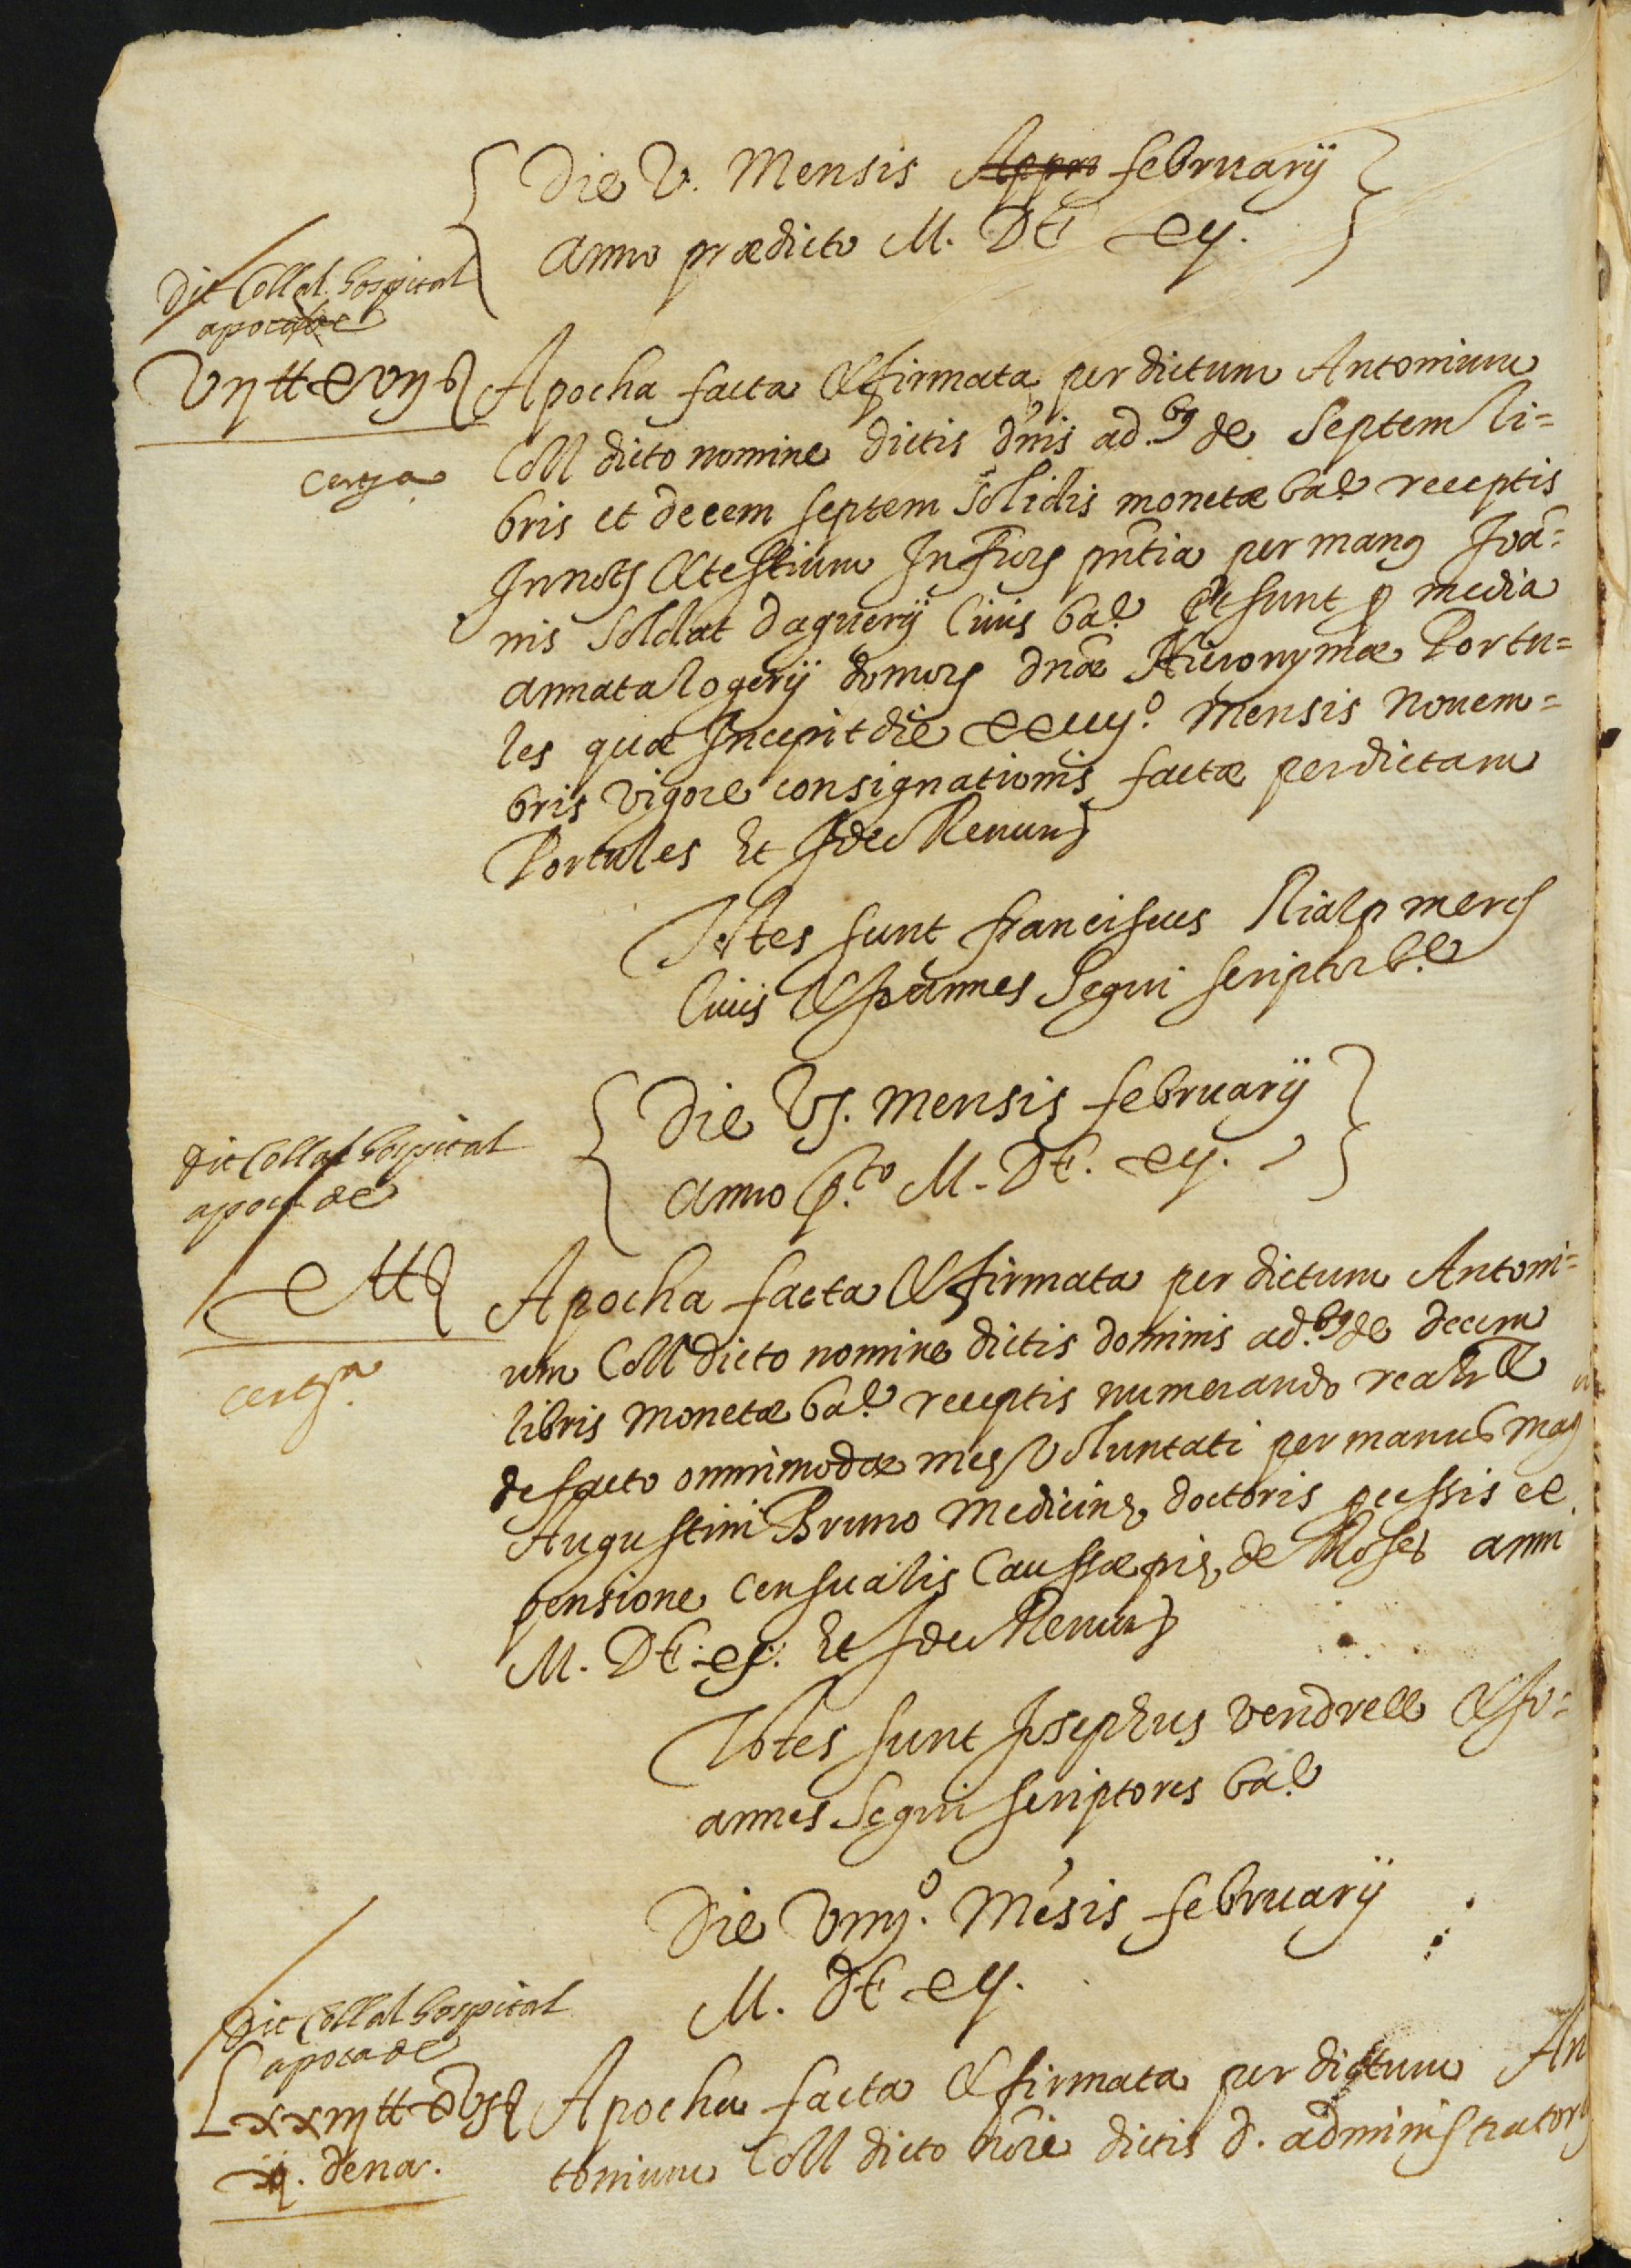 Die V. Mensis Appro februarij
Anno prædicto M. DC xij.
Dit Coll al hospital
apoca de
vij tt xvij s
certga
Apocha facta & firmata per dictum Antonium
Coll dicto nomine dictis dnis ad.bg de septem li=
bris et decem septem solidis monetæ bar receptis
In notj & testium Infrorj pntia per mang Joã=
nis Soldat daguerij Civis bar. Et sunt p media
annata logerij domorj dnæ Hieronymæ Portu=
les quæ Incepit die xxiiij.º Mensis Novem=
bris vigore consignationis factæ per dictam
Portules Et Ideo Renun
Testes sunt franciscus Rialp merc
Civis & Joannes Segui scriptor br
Die Vj. mensis februarij
Anno p.to M. DC. xij.
Dit Coll al hospital
apoca de
x tt
certga.
Apocha facta & firmata per dictum Antoni=
um Coll dicto nomine dictis dominis ad.bg de decem
libris monetæ bar receptis numerando realr &
de facto omnimodæ meę voluntati per manus mag
Augustini Bruno Medicinę doctoris pcessis ex
pensione censualis Caussæ pię de Roses anni
M. DC. xj. Et Ideo Renun
Testes sunt Josephus vendrell & Jo=
annes Segui scriptores bar
Die Viiij.º Mēsis februarij
M. DC xij.
Dit Coll al hospital
apoca de
Lxxiij tt xvj s
ij. dena.
Apocha facta & firmata per dictum An
tonium Coll dicto noīe dictis d. administratorj